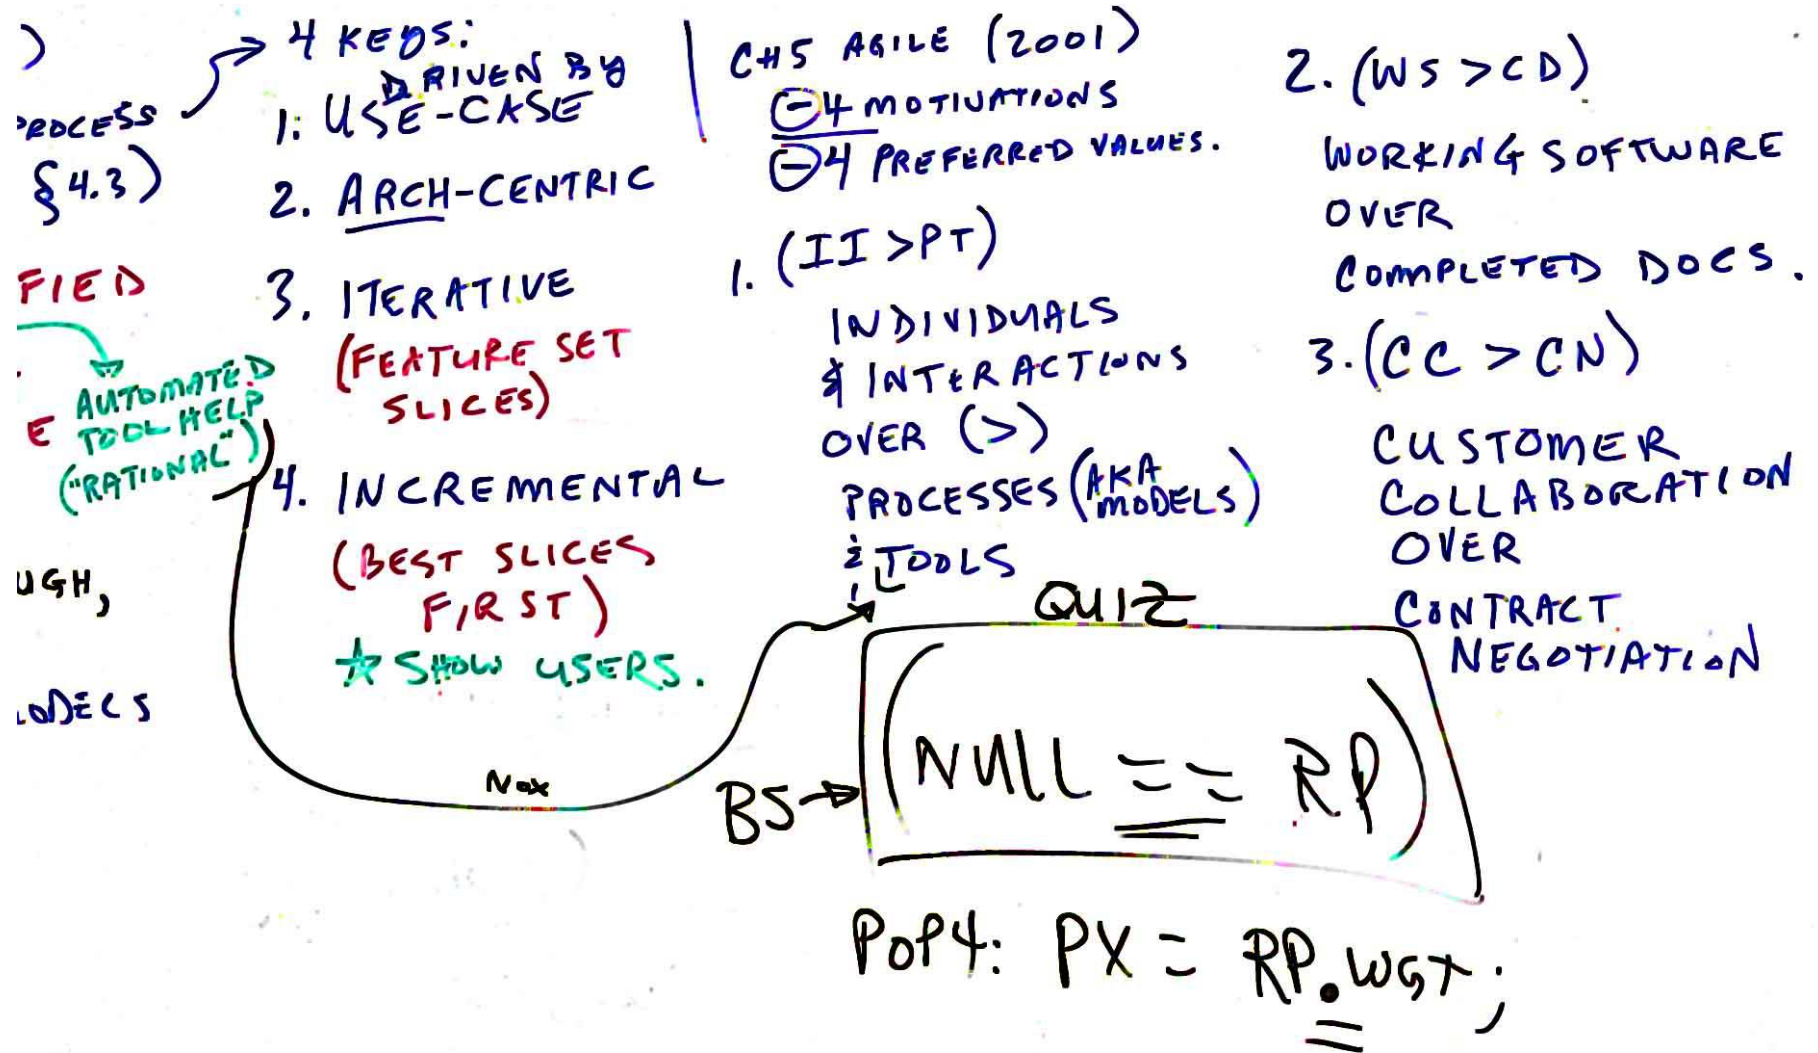 )
PROCESS
§4.3)
FIED
E AUTOMATED
TOOL HELP
("RATIONAL")
UGH,
ODELS
4 KEYS:
DRIVEN BY
1: USE-CASE
2. ARCH-CENTRIC
3. ITERATIVE
(FEATURE SET
SLICES)
4. INCREMENTAL
(BEST SLICES
FIRST)
☆ SHOW USERS.
CH5 AGILE (2001)
-4 MOTIVATIONS
-4 PREFERRED VALUES.
1. (II > PT)
INDIVIDUALS
& INTERACTIONS
OVER (>)
PROCESSES (AKA
MODELS)
& TOOLS
2. (WS > CD)
WORKING SOFTWARE
OVER
COMPLETED DOCS.
3. (CC > CN)
CUSTOMER
COLLABORATION
OVER
CONTRACT
NEGOTIATION
QUIZ
BS → (NULL == RP)
POP4: PX = RP.WGT;